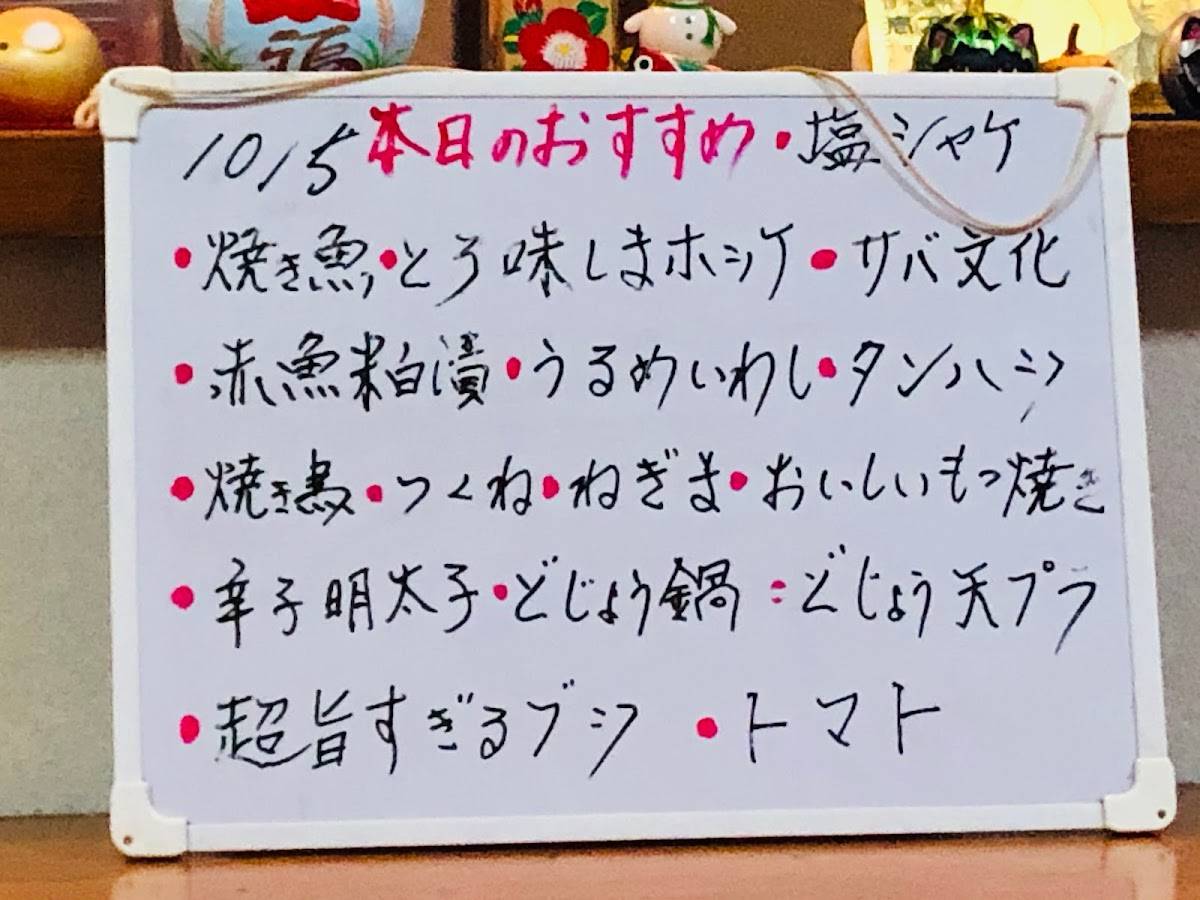 福
10/5 本日のおすすめ・塩シャケ
・焼き魚・とろ味しまホッケ・サバ文化
・赤魚粕漬・うるめいわし・タンハツ
・焼き鳥・つくね・ねぎま・おいしいもつ焼き
・辛子明太子・どじょう鍋:どじょう天プラ
・超旨すぎるブツ ・トマト